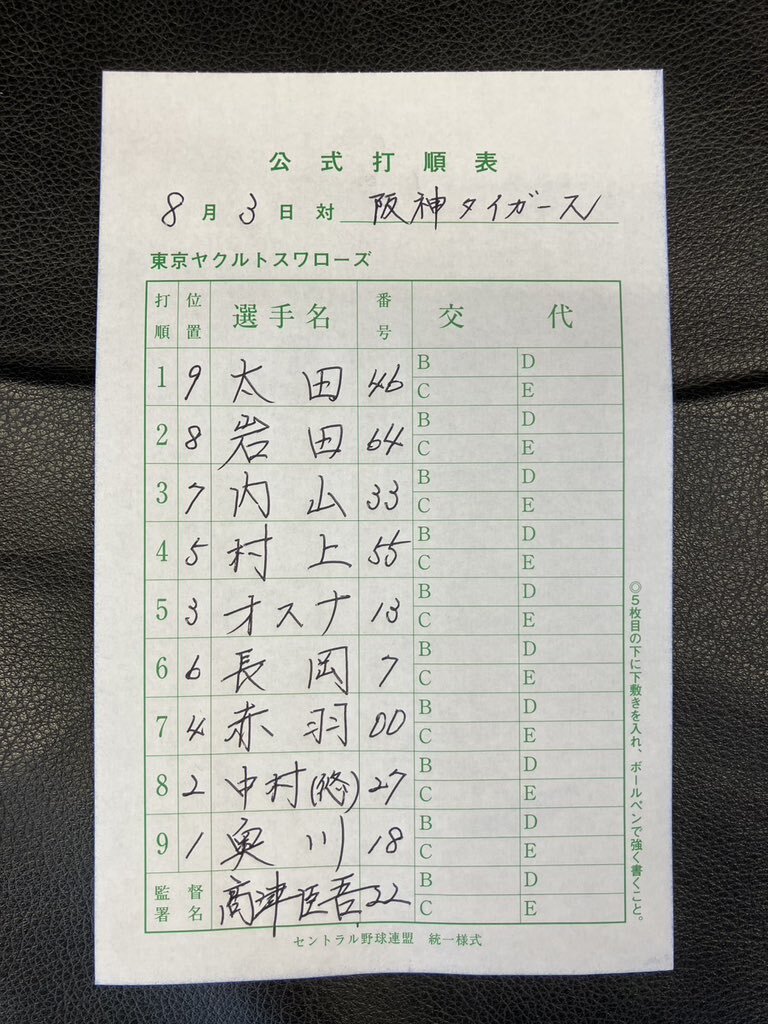 公式打順表
8月3日対 阪神タイガース
東京ヤクルトスワローズ
打順 位置 選手名 番号 交代
1 9 太田 46 B D C E
2 8 岩田 64 B D C E
3 7 内山 33 B D C E
4 5 村上 55 B D C E
5 3 オスナ 13 B D C E
6 6 長岡 7 B D C E
7 4 赤羽 00 B D C E
8 2 中村(悠) 27 B D C E
9 1 奥川 18 B D C E
監督署名 高津臣吾 22 B D C E
セントラル野球連盟 統一様式
◎5枚目の下に下敷きを入れ、ボールペンで強く書くこと。